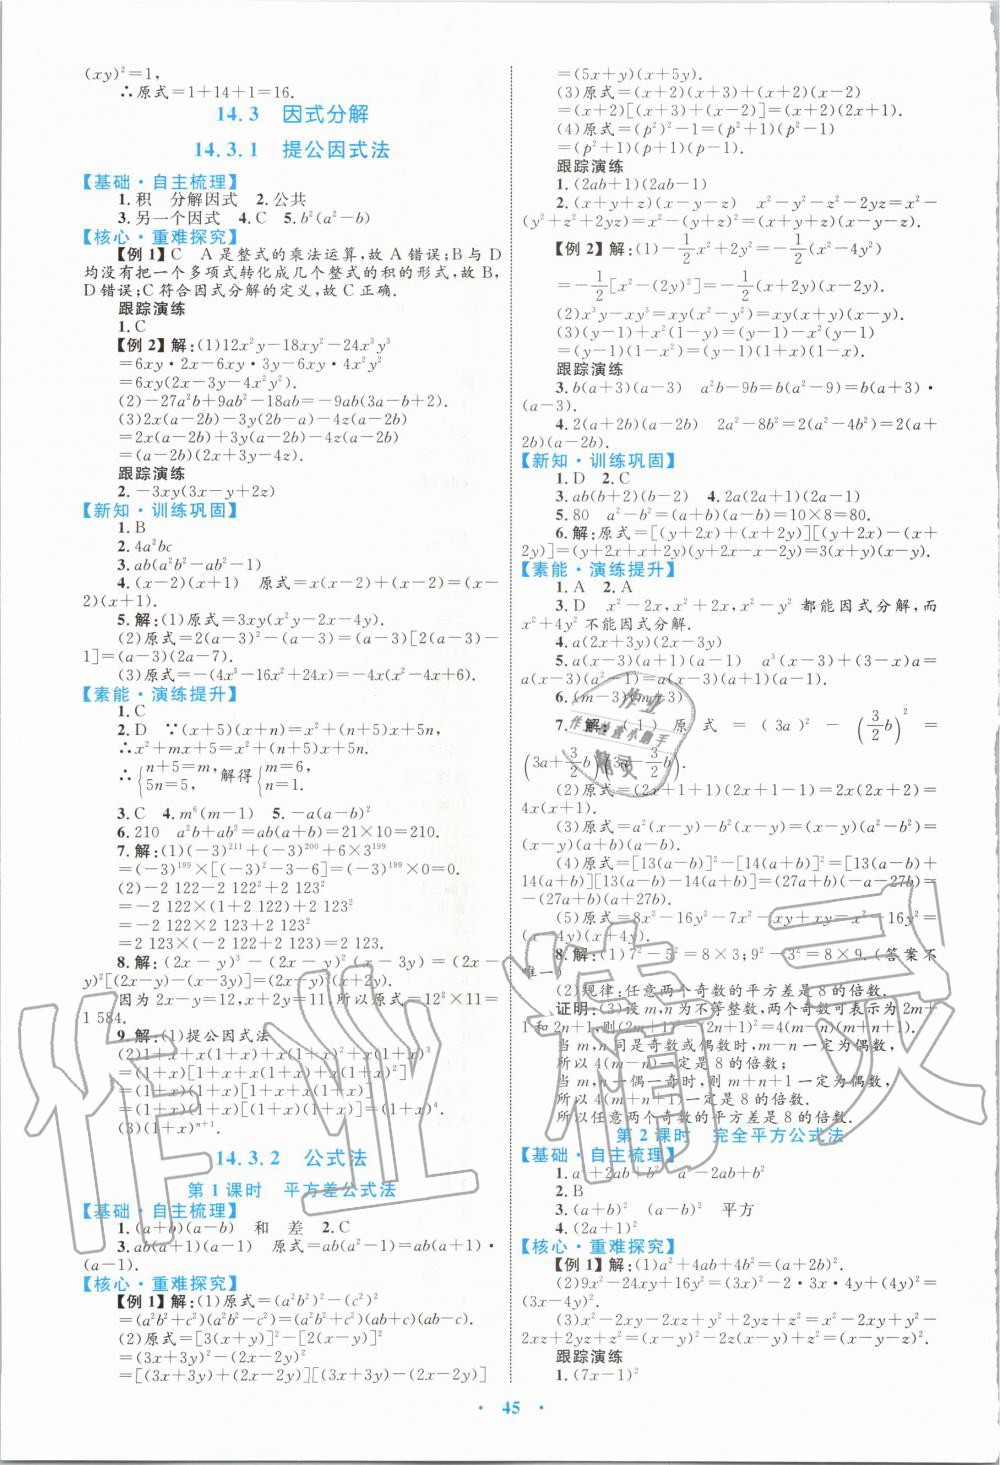 (xy)²=1,
∴原式=1+14+1=16.
14.3 因式分解
14.3.1 提公因式法
【基础·自主梳理】
1.积 分解因式 2.公共
3.另一个因式 4.C 5.b²(a²-b)
【核心·重难探究】
【例1】C A是整式的乘法运算,故A错误;B与D
均没有把一个多项式转化成几个整式的积的形式,故B,
D错误;C符合因式分解的定义,故C正确.
跟踪演练
1.C
【例2】解:(1)12x²y-18xy²-24x³y³
=6xy·2x-6xy·3y-6xy·4x²y²
=6xy(2x-3y-4x²y²).
(2)-27a²b+9ab²-18ab=-9ab(3a-b+2).
(3)2x(a-2b)-3y(2b-a)-4z(a-2b)
=2x(a-2b)+3y(a-2b)-4z(a-2b)
=(a-2b)(2x+3y-4z).
跟踪演练
2.-3xy(3x-y+2z)
【新知·训练巩固】
1.B
2.4a²bc
3.ab(a²b²-ab-1)
4.(x-2)(x+1) 原式=x(x-2)+(x-2)=(x-
2)(x+1).
5.解:(1)原式=3xy(x²y-2x-4y).
(2)原式=2(a-3)²-(a-3)=(a-3)[2(a-3)-
1]=(a-3)(2a-7).
(3)原式=-(4x³-16x²+24x)=-4x(x²-4x+6).
【素能·演练提升】
1.C
2.D ∵(x+5)(x+n)=x²+(n+5)x+5n,
∴x²+mx+5=x²+(n+5)x+5n.
∴{n+5=m, 5n=5, 解得{m=6, n=1.
3.C 4.m⁶(m-1) 5.-a(a-b)²
6.210 a²b+ab²=ab(a+b)=21×10=210.
7.解:(1)(-3)²¹¹+(-3)²⁰⁰+6×3¹⁹⁹
=(-3)¹⁹⁹×[(-3)²-3-6]=(-3)¹⁹⁹×0=0.
(2)-2 122-2 122²+2 123²
=-2 122×(1+2 122)+2 123²
=-2 122×2 123+2 123²
=2 123×(-2 122+2 123)=2 123.
8.解:(2x-y)³-(2x-y)²(x-3y)=(2x-
y)²[(2x-y)-(x-3y)]=(2x-y)²(x+2y).
因为2x-y=12,x+2y=11,所以原式=12²×11=
1 584.
9.解:(1)提公因式法
(2)1+x+x(1+x)+x(1+x)²+x(1+x)³
=(1+x)[1+x+x(1+x)+x(1+x)²]
=(1+x)(1+x)[1+x+x(1+x)]
=(1+x)(1+x)(1+x)(1+x)=(1+x)⁴.
(3)(1+x)ⁿ⁺¹.
14.3.2 公式法
第1课时 平方差公式法
【基础·自主梳理】
1.(a+b)(a-b) 和 差 2.C
3.ab(a+1)(a-1) 原式=ab(a²-1)=ab(a+1)·
(a-1).
【核心·重难探究】
【例1】解:(1)原式=(a²b²)²-(c²)²
=(a²b²+c²)(a²b²-c²)=(a²b²+c²)(ab+c)(ab-c).
(2)原式=[3(x+y)]²-[2(x-y)]²
=(3x+3y)²-(2x-2y)²
=[(3x+3y)+(2x-2y)][(3x+3y)-(2x-2y)]
=(5x+y)(x+5y).
(3)原式=(x+2)(x+3)+(x+2)(x-2)
=(x+2)[(x+3)+(x-2)]=(x+2)(2x+1).
(4)原式=(p²)²-1=(p²+1)(p²-1)
=(p²+1)(p+1)(p-1).
跟踪演练
1.(2ab+1)(2ab-1)
2.(x+y+z)(x-y-z) x²-y²-z²-2yz=x²-
(y²+z²+2yz)=x²-(y+z)²=(x+y+z)(x-y-z).
【例2】解:(1)-1/2x²+2y²=-1/2(x²-4y²)
=-1/2[x²-(2y)²]=-1/2(x+2y)(x-2y).
(2)x³y-xy³=xy(x²-y²)=xy(x+y)(x-y).
(3)(y-1)+x²(1-y)=(y-1)-x²(y-1)
=(y-1)(1-x²)=(y-1)(1+x)(1-x).
跟踪演练
3.b(a+3)(a-3) a²b-9b=b(a²-9)=b(a+3)·
(a-3).
4.2(a+2b)(a-2b) 2a²-8b²=2(a²-4b²)=2(a+
2b)(a-2b).
【新知·训练巩固】
1.D 2.C
3.ab(b+2)(b-2) 4.2a(2a+1)(2a-1)
5.80 a²-b²=(a+b)(a-b)=10×8=80.
6.解:原式=[(y+2x)+(x+2y)][(y+2x)-(x+
2y)]=(y+2x+x+2y)(y+2x-x-2y)=3(x+y)(x-y).
【素能·演练提升】
1.A 2.A
3.D x²-2x,x²+2x,x²-y²都能因式分解,而
x²+4y²不能因式分解.
4.a(2x+3y)(2x-3y)
5.a(x-3)(x-a) a³(x-3)+(3-x)a=
a(x-3)(a²-1)=a(x-3)(a+1)(a-1).
6.(m-3)(m+3)
7.解:(1)原式=(3a)²-(3/2b)²=
(3a+3/2b)(3a-3/2b).
(2)原式=(2x+1+1)(2x+1-1)=(2x+2)2x=
4x(x+1).
(3)原式=a²(x-y)-b²(x-y)=(x-y)(a²-b²)=
(x-y)(a+b)(a-b).
(4)原式=[13(a-b)]²-[14(a+b)]²=[13(a-b)+
14(a+b)][13(a-b)-14(a+b)]=(27a+b)(-a-27b)=
-(27a+b)(a+27b).
(5)原式=8x²-16y²-7x²-xy+xy=x²-16y²=
(x+4y)(x-4y).
8.解:(1)7²-5²=8×3;9²-3²=8×9.(答案不
唯一)
(2)规律:任意两个奇数的平方差是8的倍数.
证明:(3)设m,n为不等整数,两个奇数可表示为2m+
1和2n+1,则(2m+1)²-(2n+1)²=4(m-n)(m+n+1).
当m,n同是奇数或偶数时,m-n一定为偶数,
所以4(m-n)一定是8的倍数;
当m,n一偶一奇时,则m+n+1一定为偶数,
所以4(m+n+1)一定是8的倍数.
所以任意两个奇数的平方差是8的倍数.
第2课时 完全平方公式法
【基础·自主梳理】
1.a²+2ab+b² a²-2ab+b²
2.B
3.(a+b)² (a-b)² 平方
4.(2a+1)²
【核心·重难探究】
【例1】解:(1)a²+4ab+4b²=(a+2b)².
(2)9x²-24xy+16y²=(3x)²-2·3x·4y+(4y)²=
(3x-4y)².
(3)x²-2xy-2xz+y²+2yz+z²=x²-2xy+y²-
2xz+2yz+z²=(x-y)²-2z(x-y)+z²=(x-y-z)².
跟踪演练
1.(7x-1)²
· 45 ·
作业精灵